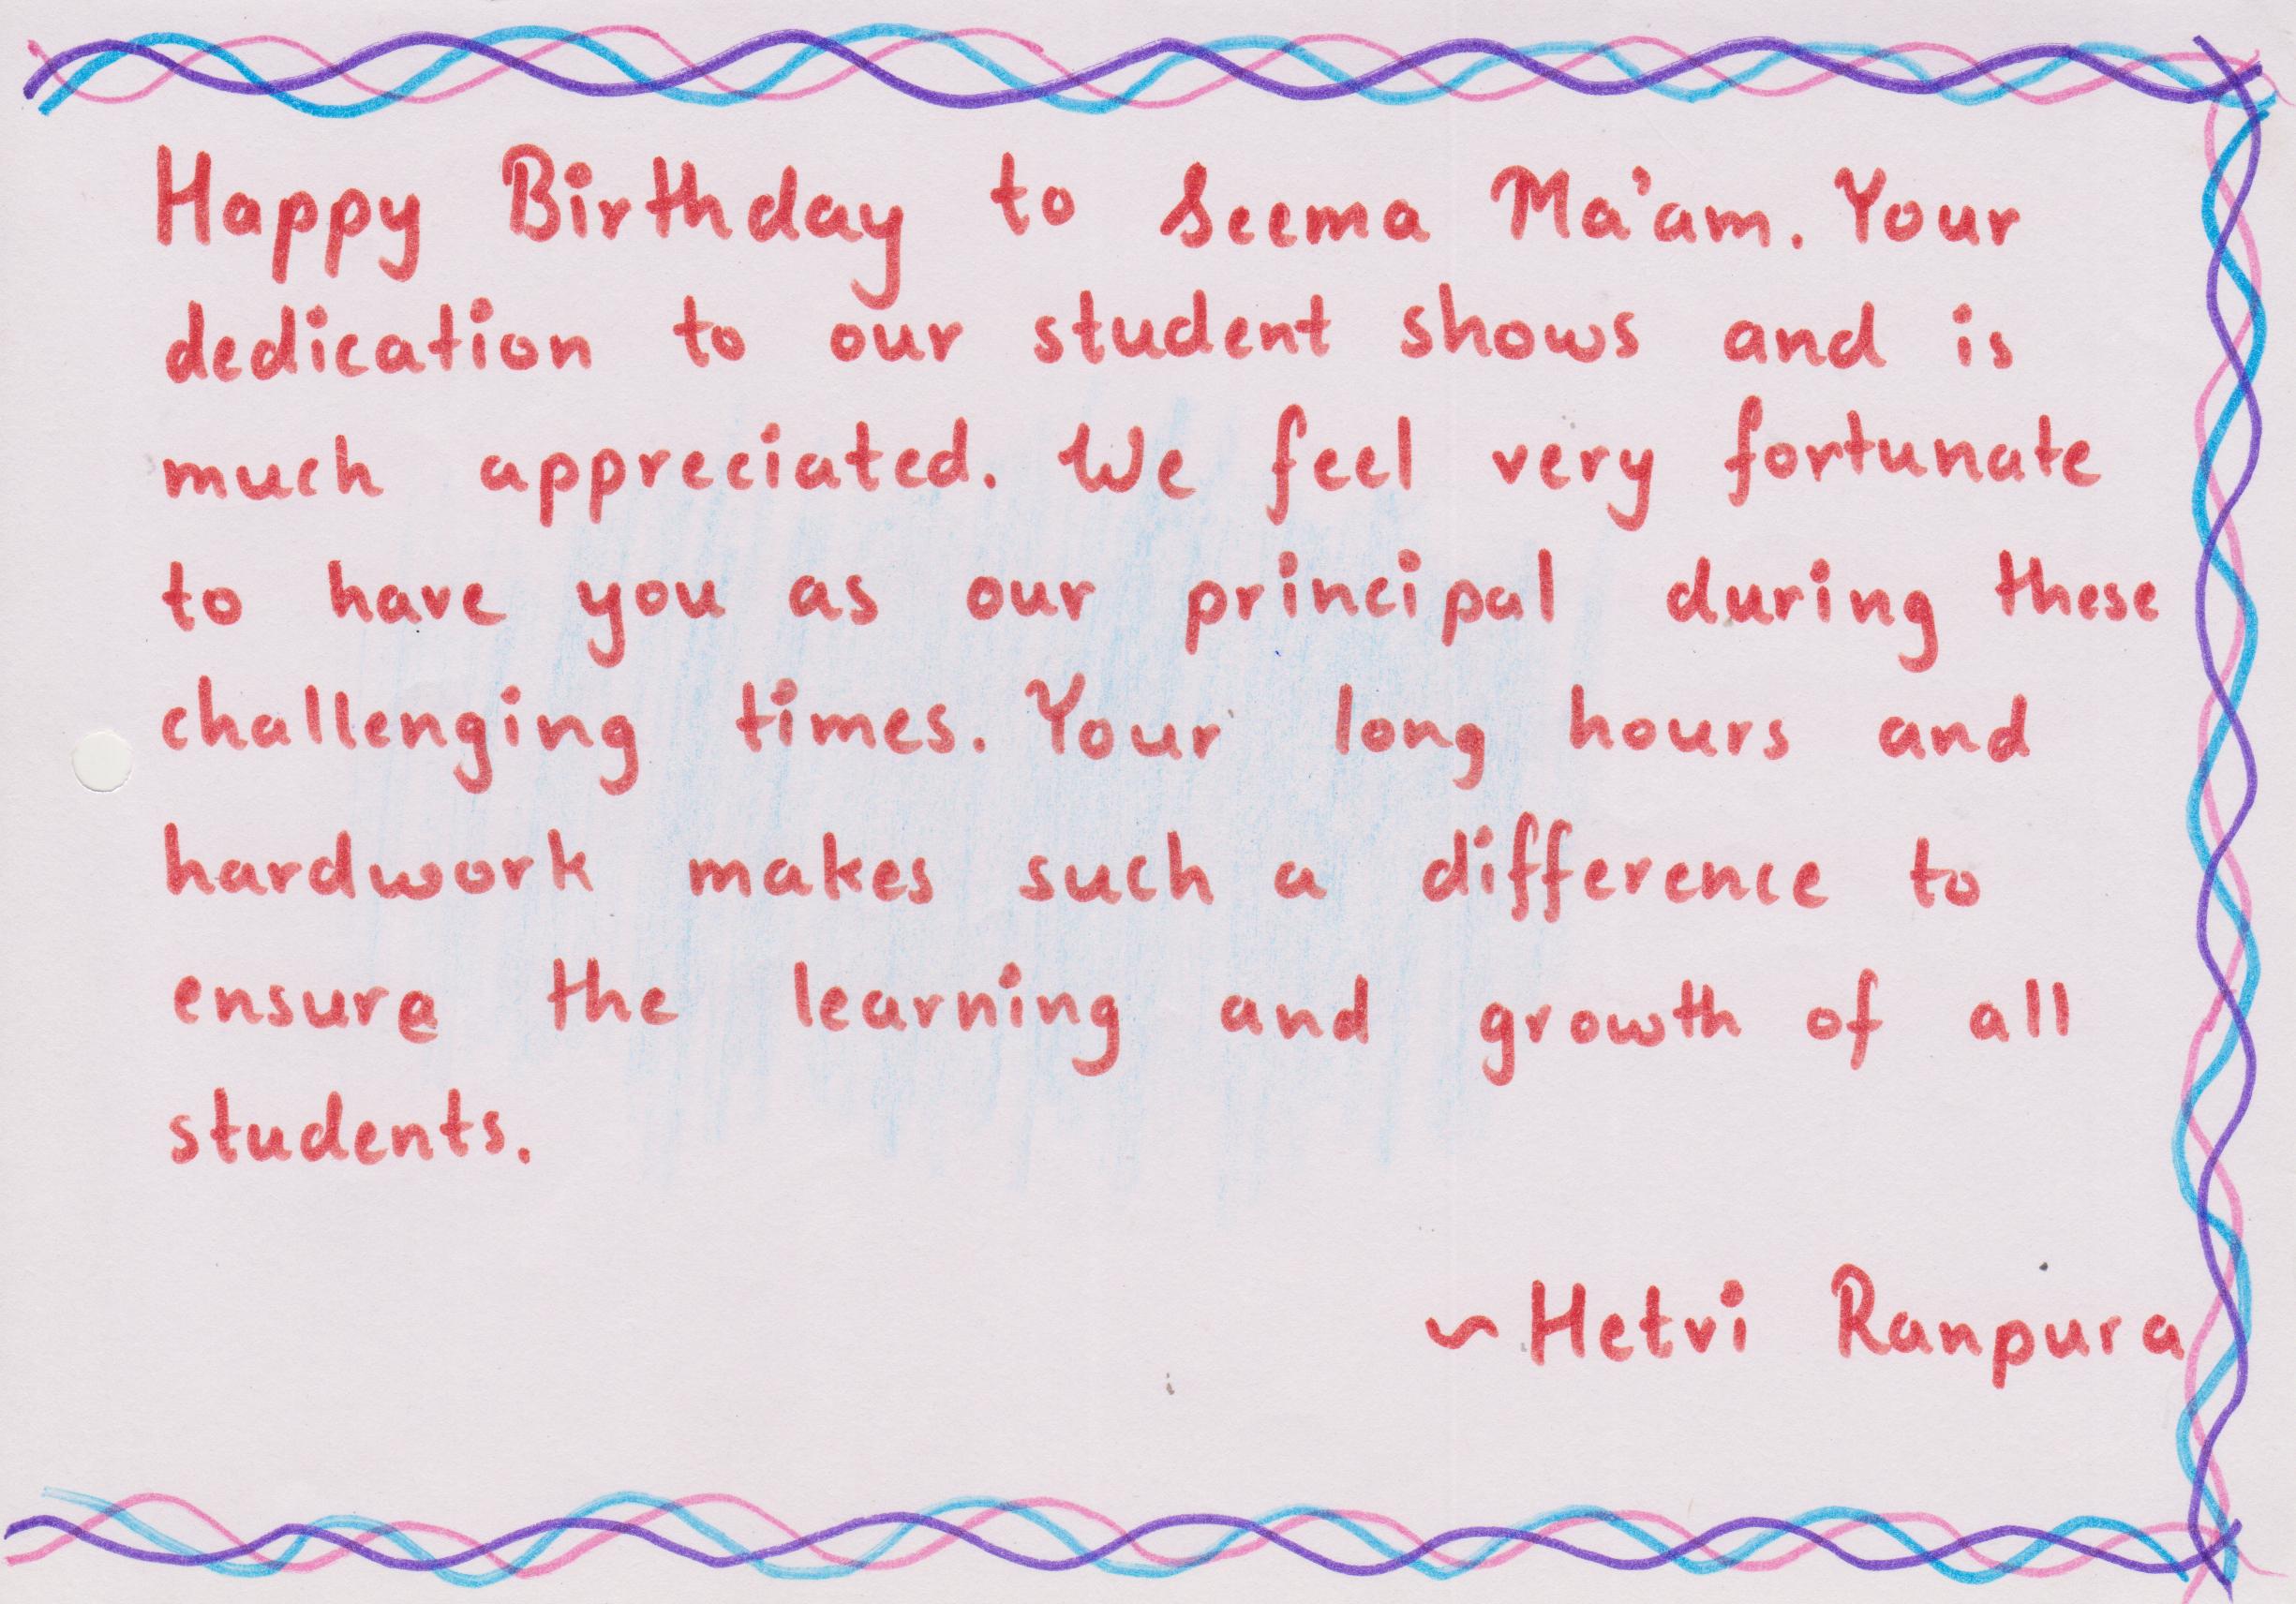 Happy Birthday to Seema Ma'am. Your
dedication to our student shows and is
much appreciated. We feel very fortunate
to have you as our principal during these
challenging times. Your long hours and
hardwork makes such a difference to
ensure the learning and growth of all
students.
~ Hetvi Ranpura